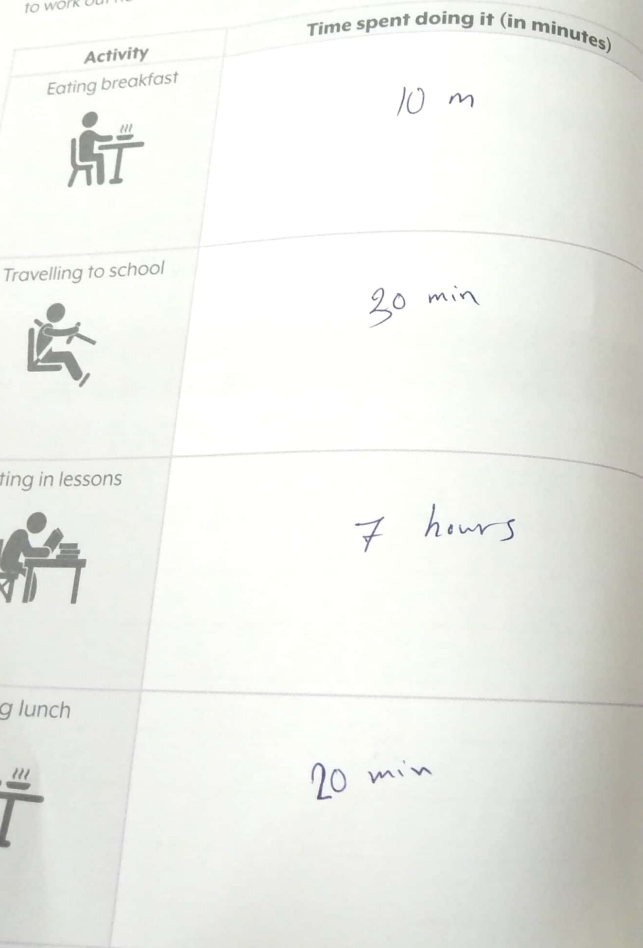 to work out
Time spent doing it (in minutes)
Activity
Eating breakfast
10 m
Travelling to school
30 min
ting in lessons
7 hours
g lunch
20 min